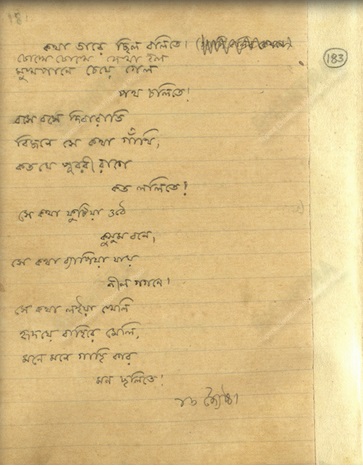 18.
183
কথা তারে ছিল বলিতে!
চোখে চোখে দেখা হল
পথ চলিতে!
বসে বসে দিবারাতি
বিজনে সে কথা গাঁথি,
কত যে পুরবী রাগে
কত ললিতে!
সে কথা ফুটিয়া উঠে
কুসুম বনে,
সে কথা ব্যাপিয়া যায়
নীল গগনে!
সে কথা লইয়া খেলি
হৃদয়ে বাহিরে মেলি,
মনে মনে গাহি কার
মন ছলিতে!
১৮ জ্যৈষ্ঠ।